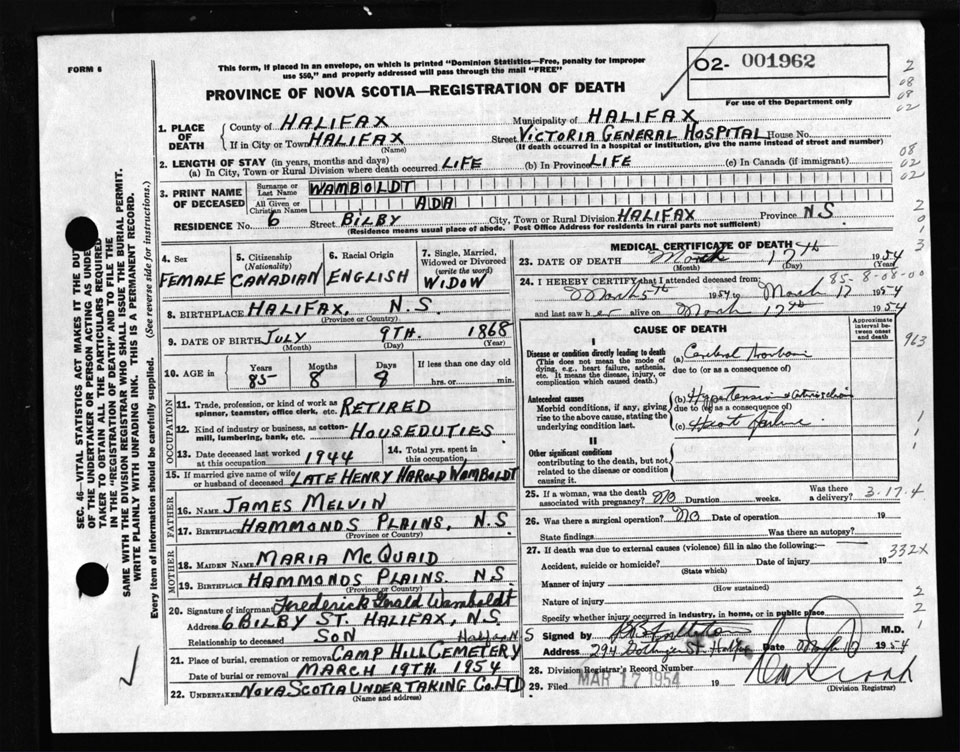 FORM 6
This form, if placed in an envelope, on which is printed "Dominion Statistics—Free, penalty for improper
use $50," and properly addressed will pass through the mail "FREE"
02- 001962
For use of the Department only
PROVINCE OF NOVA SCOTIA—REGISTRATION OF DEATH
2
08
08
02
08
02
02
2
0
1
3
1. PLACE OF DEATH
County of HALIFAX Municipality of HALIFAX
If in City or Town HALIFAX (Name) Street VICTORIA GENERAL HOSPITAL House No.
(If death occurred in a hospital or institution, give the name instead of street and number)
2. LENGTH OF STAY (in years, months and days)
(a) In City, Town or Rural Division where death occurred LIFE (b) In Province LIFE (c) In Canada (if immigrant)
3. PRINT NAME OF DECEASED
Surname or Last Name WAMBOLDT
All Given or Christian Names ADA
RESIDENCE No. 6 Street BILBY City, Town or Rural Division HALIFAX Province N.S.
(Residence means usual place of abode. Post Office Address for residents in rural parts not sufficient)
4. Sex FEMALE
5. Citizenship (Nationality) CANADIAN
6. Racial Origin ENGLISH
7. Single, Married, Widowed or Divorced (write the word) WIDOW
8. BIRTHPLACE HALIFAX, N.S.
(Province or Country)
9. DATE OF BIRTH JULY 9TH. 1868
(Month) (Day) (Year)
10. AGE in Years 85 Months 8 Days 9 If less than one day old hrs. or min.
OCCUPATION
11. Trade, profession, or kind of work as spinner, teamster, office clerk, etc. RETIRED
12. Kind of industry or business, as cotton-mill, lumbering, bank, etc. HOUSEDUTIES
13. Date deceased last worked at this occupation 1944 14. Total yrs. spent in this occupation
15. If married give name of wife or husband of deceased LATE HENRY HAROLD WAMBOLDT
FATHER
16. NAME JAMES MELVIN
17. BIRTHPLACE HAMMONDS PLAINS, N.S
(Province or Country)
MOTHER
18. MAIDEN NAME MARIA MCQUAID
19. BIRTHPLACE HAMMONDS PLAINS. N.S.
(Province or Country)
20. Signature of informant Frederick Gerald Wamboldt
Address 6 BILBY ST. HALIFAX, N.S.
Relationship to deceased SON
21. Place of burial, cremation or removal CAMP HILL CEMETERY Halifax N S
Date of burial or removal MARCH 19TH. 1954
22. UNDERTAKER NOVA SCOTIA UNDERTAKING CO. LTD
(Name and Address)
MEDICAL CERTIFICATE OF DEATH
23. DATE OF DEATH March 17th 1954
(Month) (Day) (Year)
85-8-08-00
24. I HEREBY CERTIFY that I attended deceased from:
March 5th 1954 to March 17 1954
and last saw her alive on March 17 1954
CAUSE OF DEATH
Approximate interval between onset and death
963
I
Disease or condition directly leading to death
(This does not mean the mode of dying, e.g., heart failure, asthenia, etc. It means the disease, injury, or complication which caused death.)
(a) Cerebral
due to (or as a consequence of)
Antecedent causes
Morbid conditions, if any, giving rise to the above cause, stating the underlying condition last.
(b) Hypertension
due to (or as a consequence of)
(c) Heart failure
1
1
1
II
Other significant conditions
contributing to the death, but not related to the disease or condition causing it.
25. If a woman, was the death associated with pregnancy? No Duration weeks. Was there a delivery? 3-17-4
26. Was there a surgical operation? No Date of operation 19
State findings Was there an autopsy?
27. If death was due to external causes (violence) fill in also the following:—
332X
Accident, suicide or homicide? Date of injury 19
(State which)
Manner of injury
(How sustained)
Nature of injury
2
2
1
Specify whether injury occurred in industry, in home, or in public place
Signed by M.D.
Address 294 Gottingen St. Halifax Date 1954
28. Division Registrar's Record Number
29. Filed MAR 17 1954 19
(Division Registrar)
SEC. 46—VITAL STATISTICS ACT MAKES IT THE DUTY
OF THE UNDERTAKER OR PERSON ACTING AS UNDER-
TAKER TO OBTAIN ALL THE PARTICULARS REQUIRED
IN THE "REGISTRATION OF DEATH" AND TO FILE THE
SAME WITH THE DIVISION REGISTRAR WHO SHALL ISSUE THE BURIAL PERMIT.
WRITE PLAINLY WITH UNFADING INK. THIS IS A PERMANENT RECORD.
Every item of information should be carefully supplied. (See reverse side for instructions.)